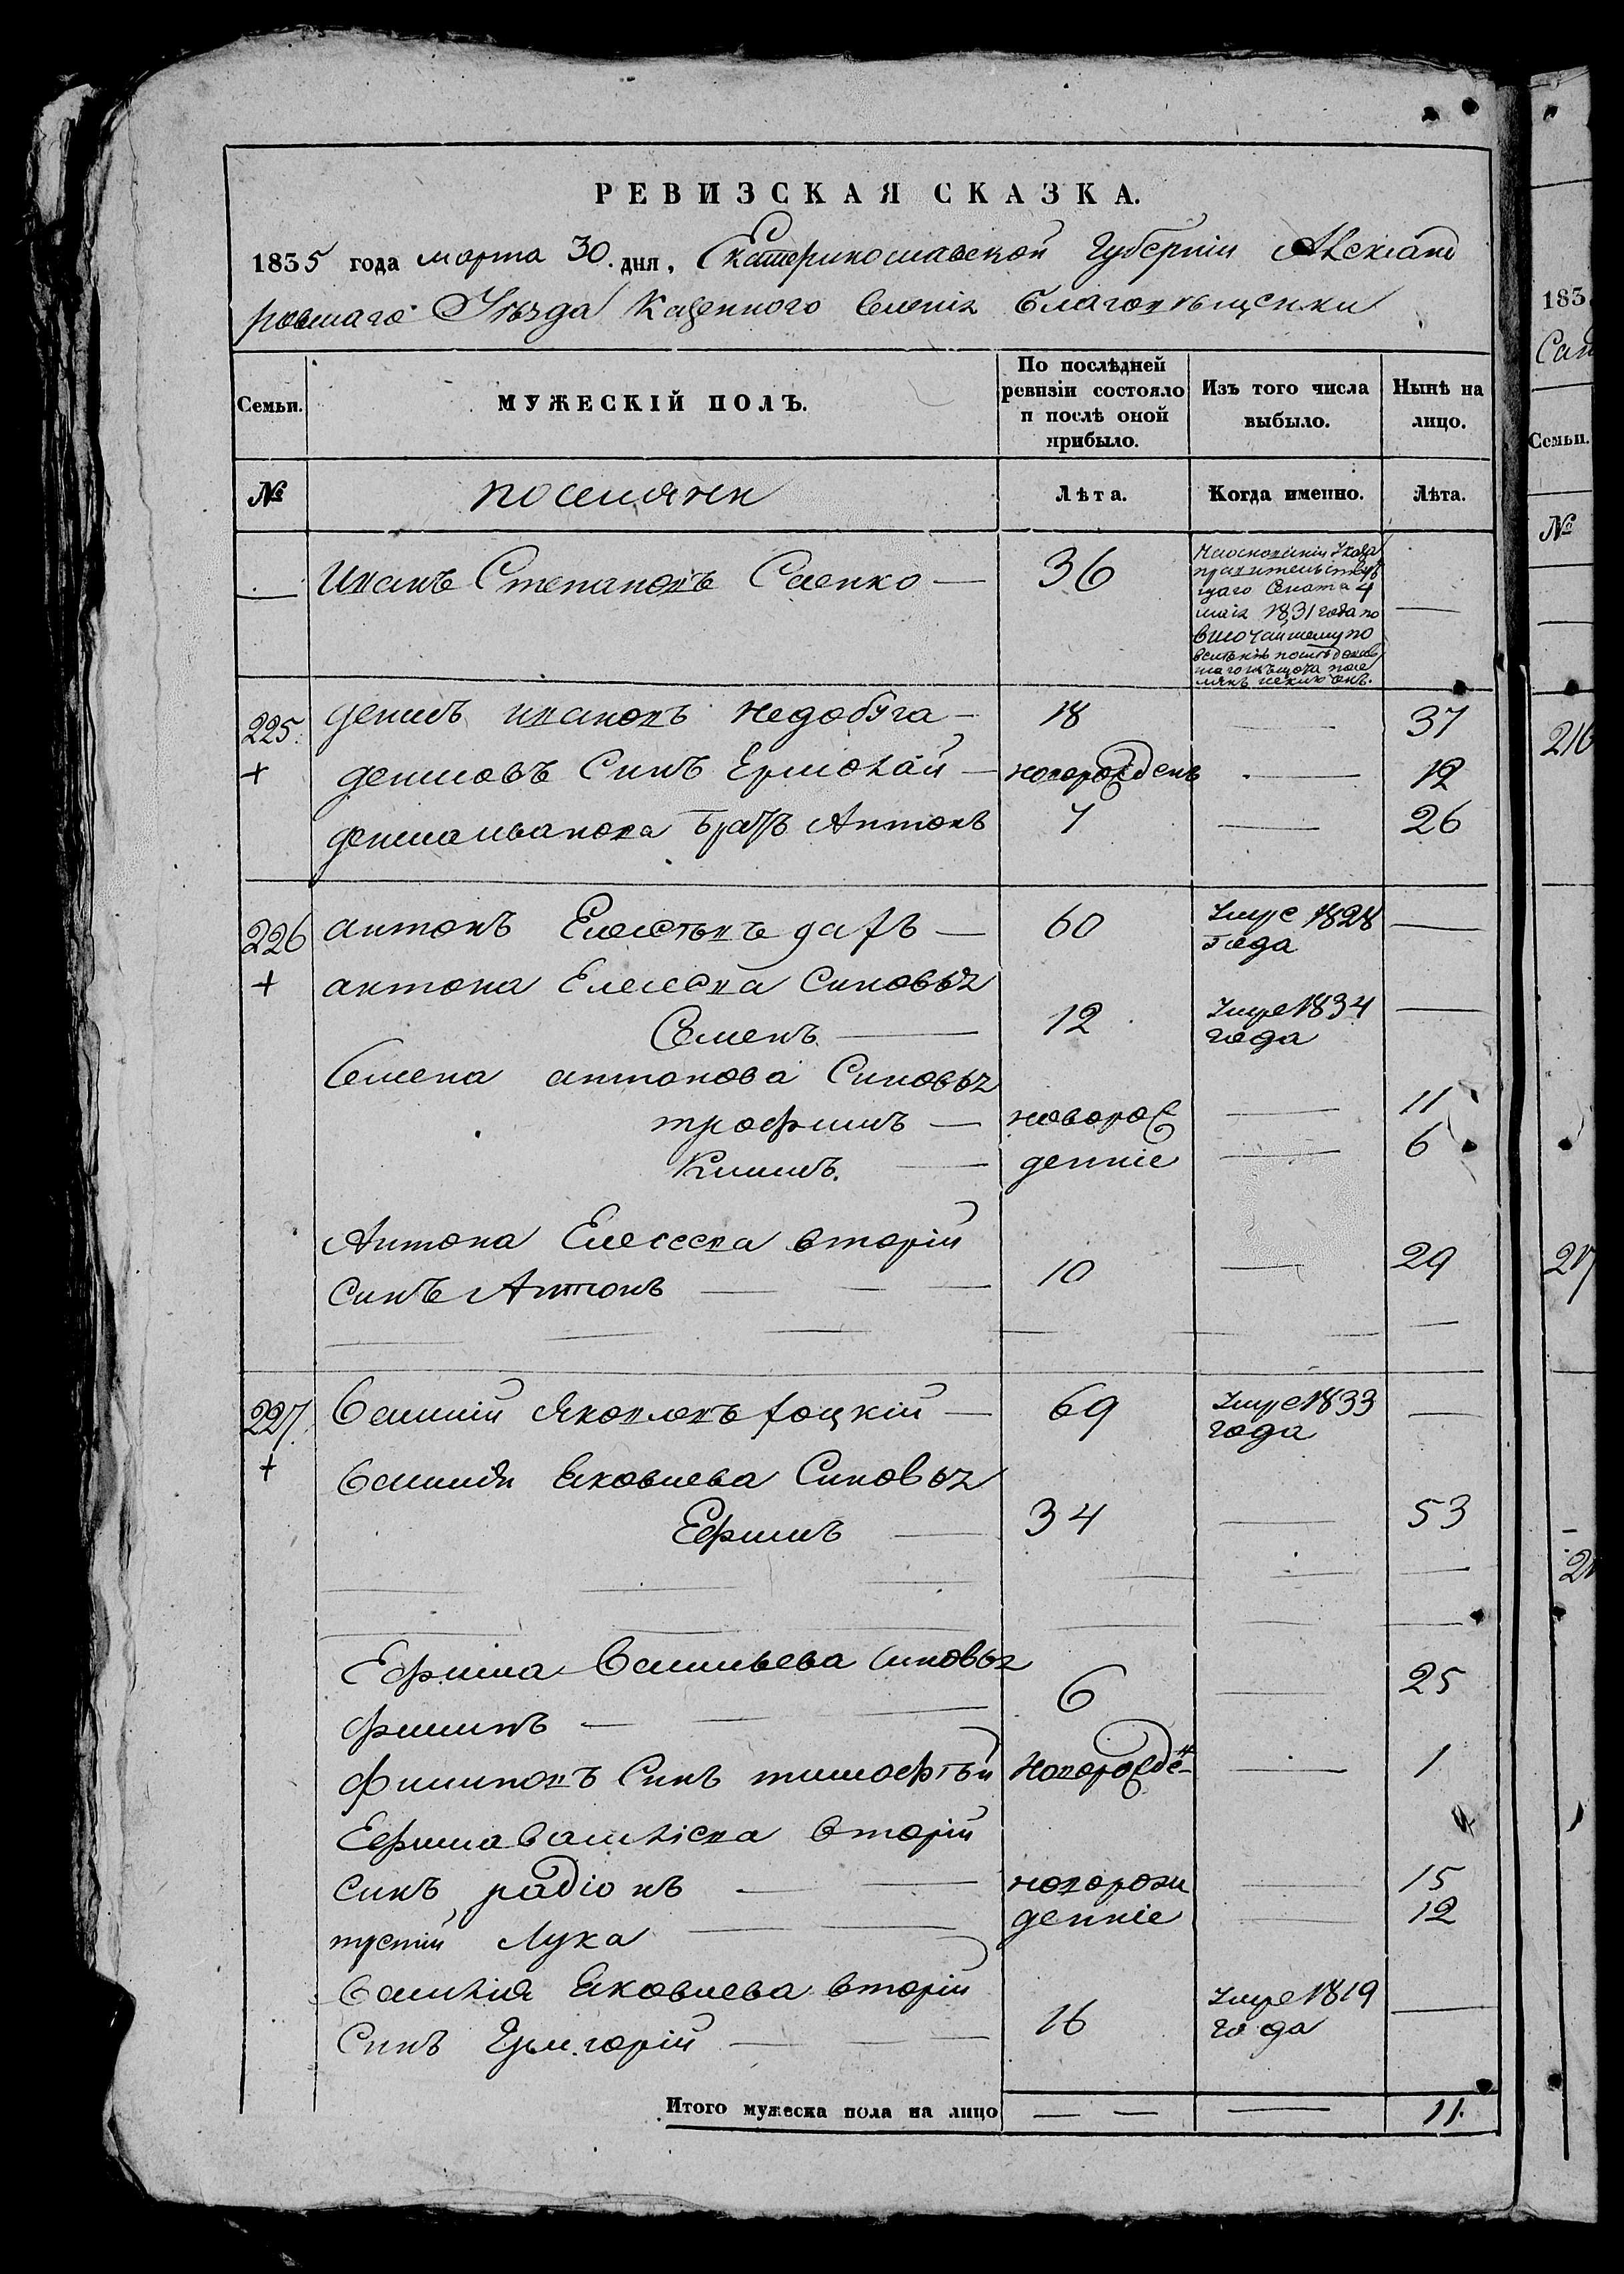 РЕВИЗСКАЯ СКАЗКА.
1835 года марта 30. дня, Екатеринославской Губерніи Александ
ровскаго Уѣзда Казенного Селенія Благовѣщенки
Семьи. МУЖЕСКІЙ ПОЛЪ. По послѣдней ревизіи состояло и послѣ оной прибыло. Изъ того числа выбыло. Нынѣ на лицо.
№ поселяне Лѣта. Когда именно. Лѣта.
— Иванъ Степановъ Саенко — 36 —
Наосновании Указа
правительствую
щаго Сената 4
мая 1831 года по
височайшему по
225. денисъ ивановъ недобуга — 18 — 37
+ денисовъ Синъ Ермолай — новорожденъ — 12
дениса иванова братъ Антонъ 7 — 26
226 антонъ Елесѣевъ — 60 Умре 1828 —
года
+ антона Елесева Синовья
Семенъ — 12 Умре 1834 —
года
Семена антонова Синовья
трофимъ — новорож — 11
Климъ. — денніе — 6
Антона Елесеева вторій
синъ Антонъ — 10 — 29
227. Василій Яковлевъ — 69 Умре 1833 —
года
+ Василія Яковлева Синовья
Ефимъ — 34 — 53
Ефима Васильева Синовья
филипъ — 6 — 25
Филиповъ Синъ тимофѣй новорожден — 1
Ефима Васильева вторій
синъ радіонъ — новорож — 15
третій Лука — денніе — 12
Василія Яковлева вторій
Синъ — 16 Умре 1819 —
года
Итого мужеска пола на лицо — — — 11.
183
Семьи.
№